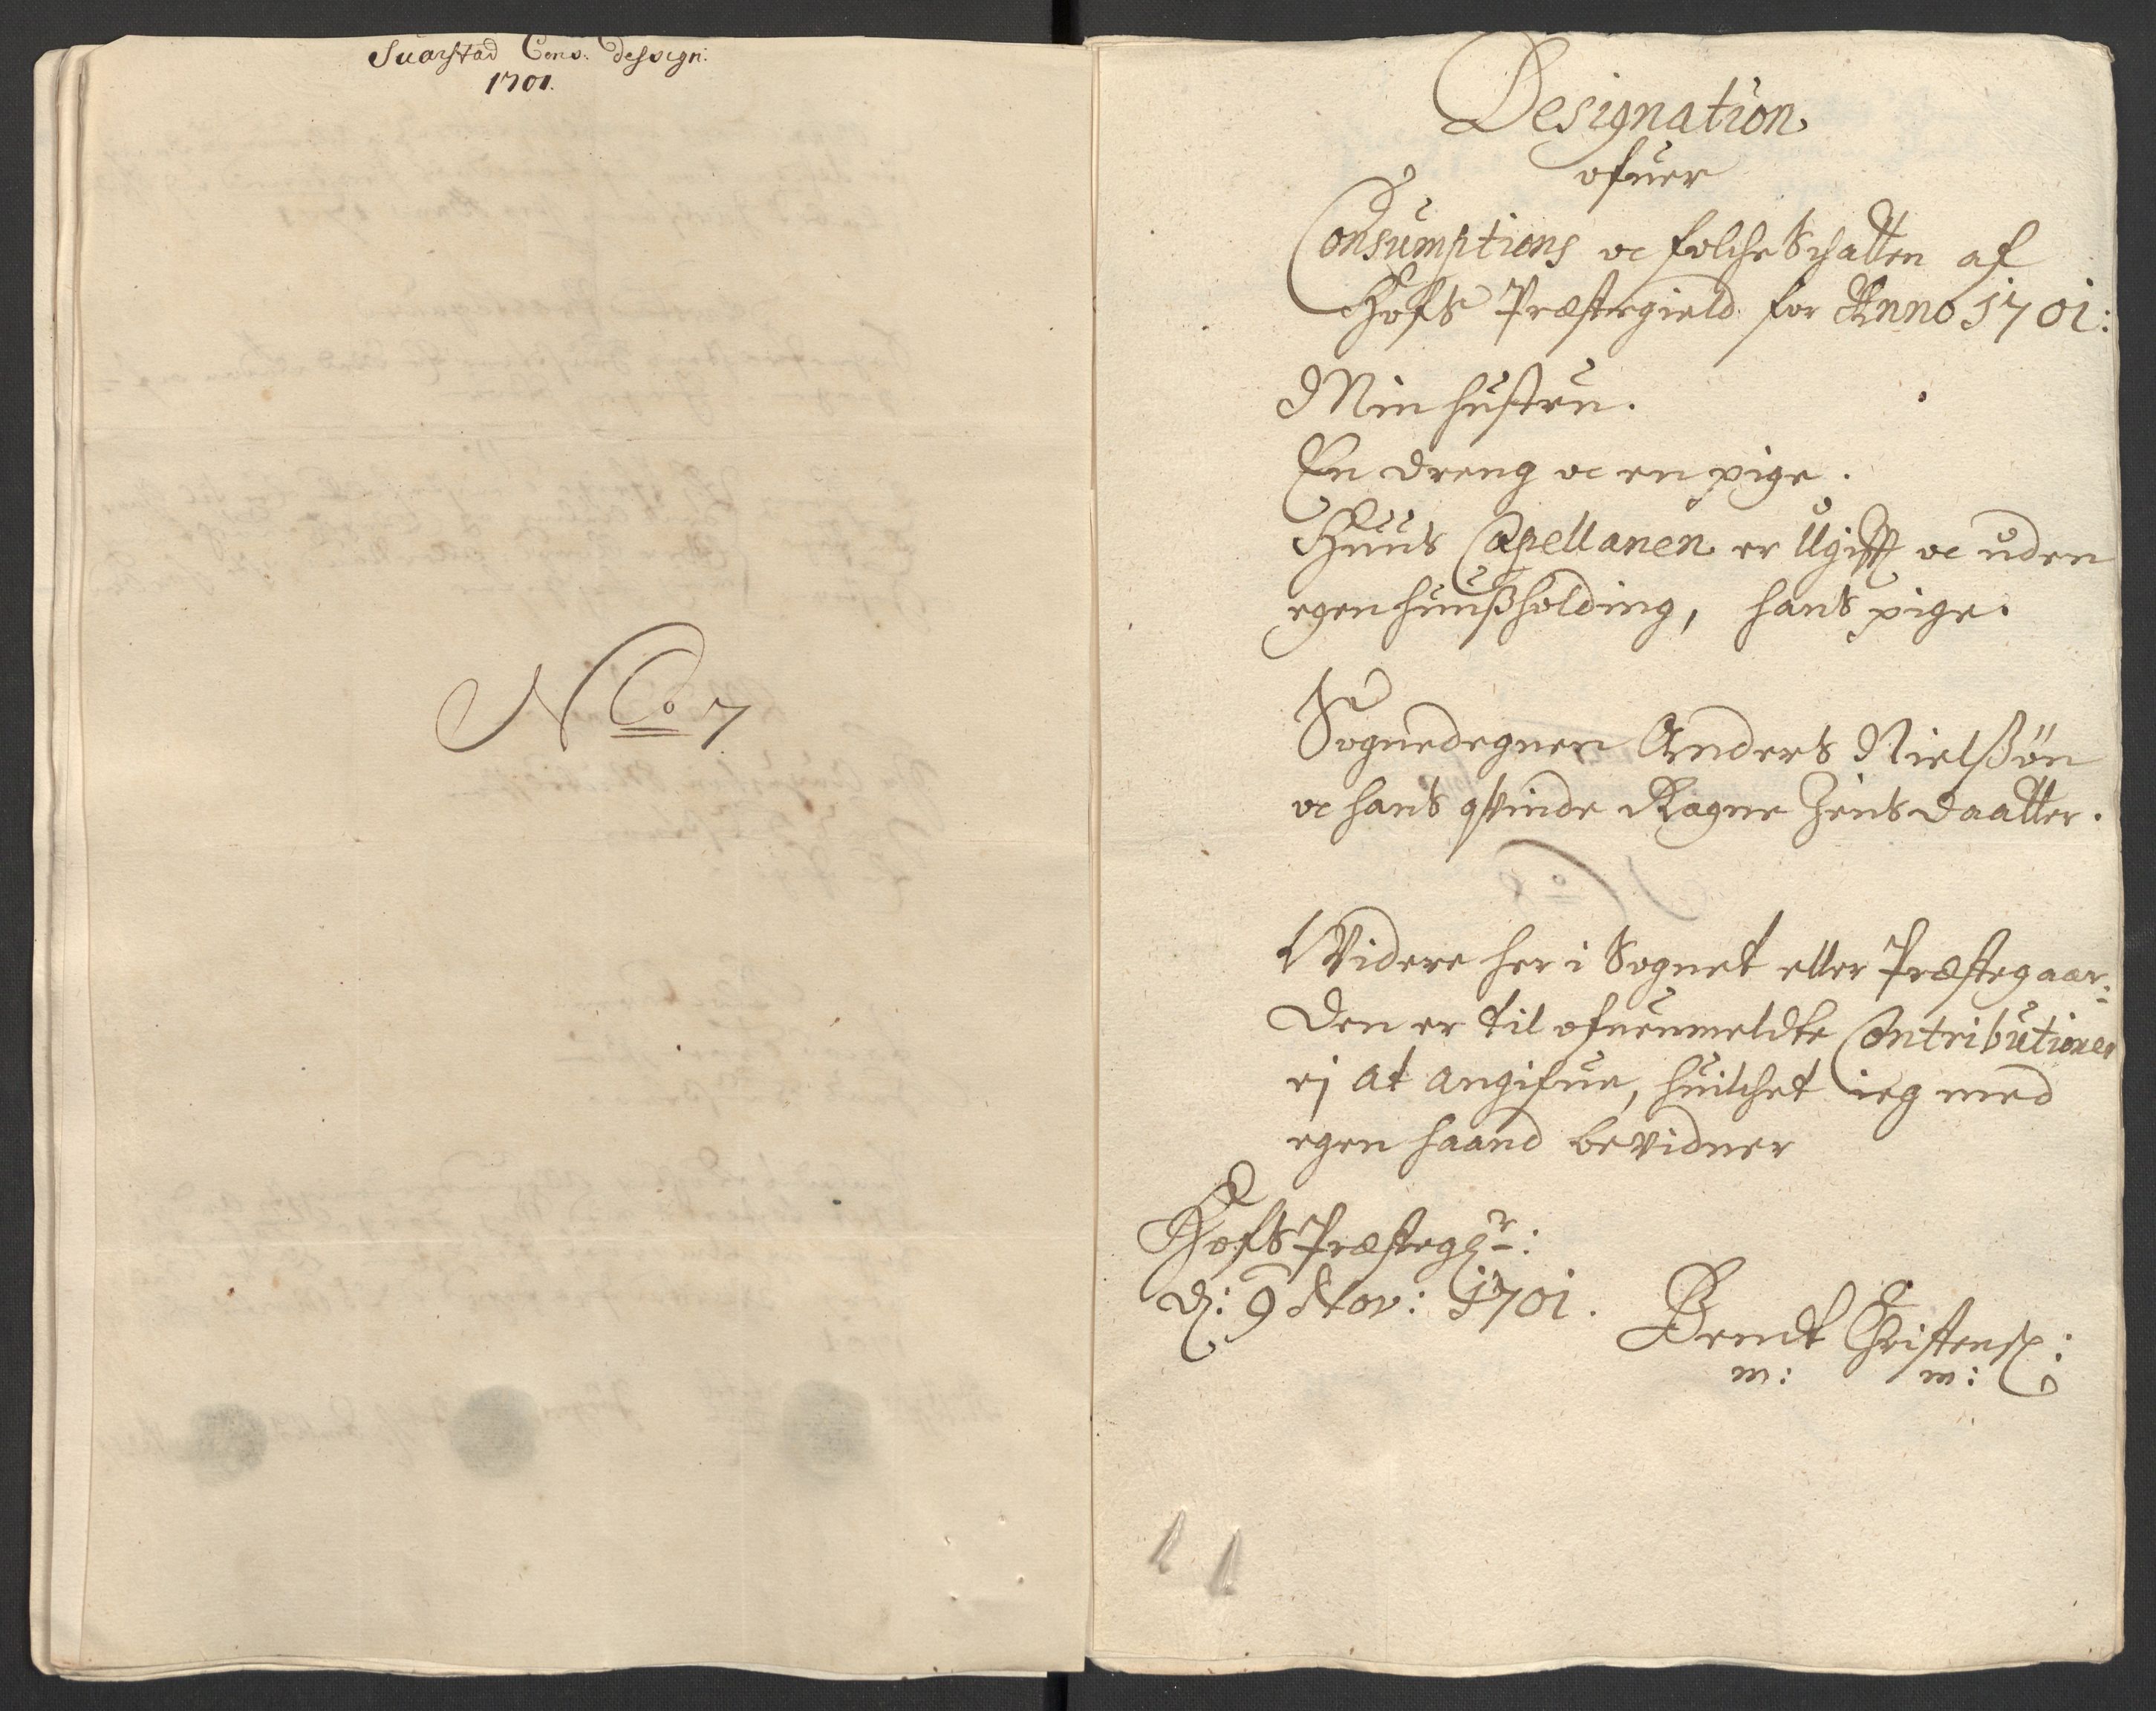 Suarstad Cons: dessign:
1701.
No 7
Designation
ofuer
Consumptions oc folcheSchatten af
Hofs Præstegield for Anno 1701:
Min hustru.
En dreng oc en pige.
Huus Capellanen er Ugifft oc uden
egen huußholding, hans pige.
Sognedegnen Anders Nielßøn
oc hans qvinde Ragne Jens daatter.
Videre her i Sognet eller Præstegaar:
den er til ofuenmeldte Contributioner
ej at angifue, huilchet ieg med
egen haand bevidner
Hofs Præstegr:
d: 9 Nov: 1701.
Bendt Christens:
m: m: